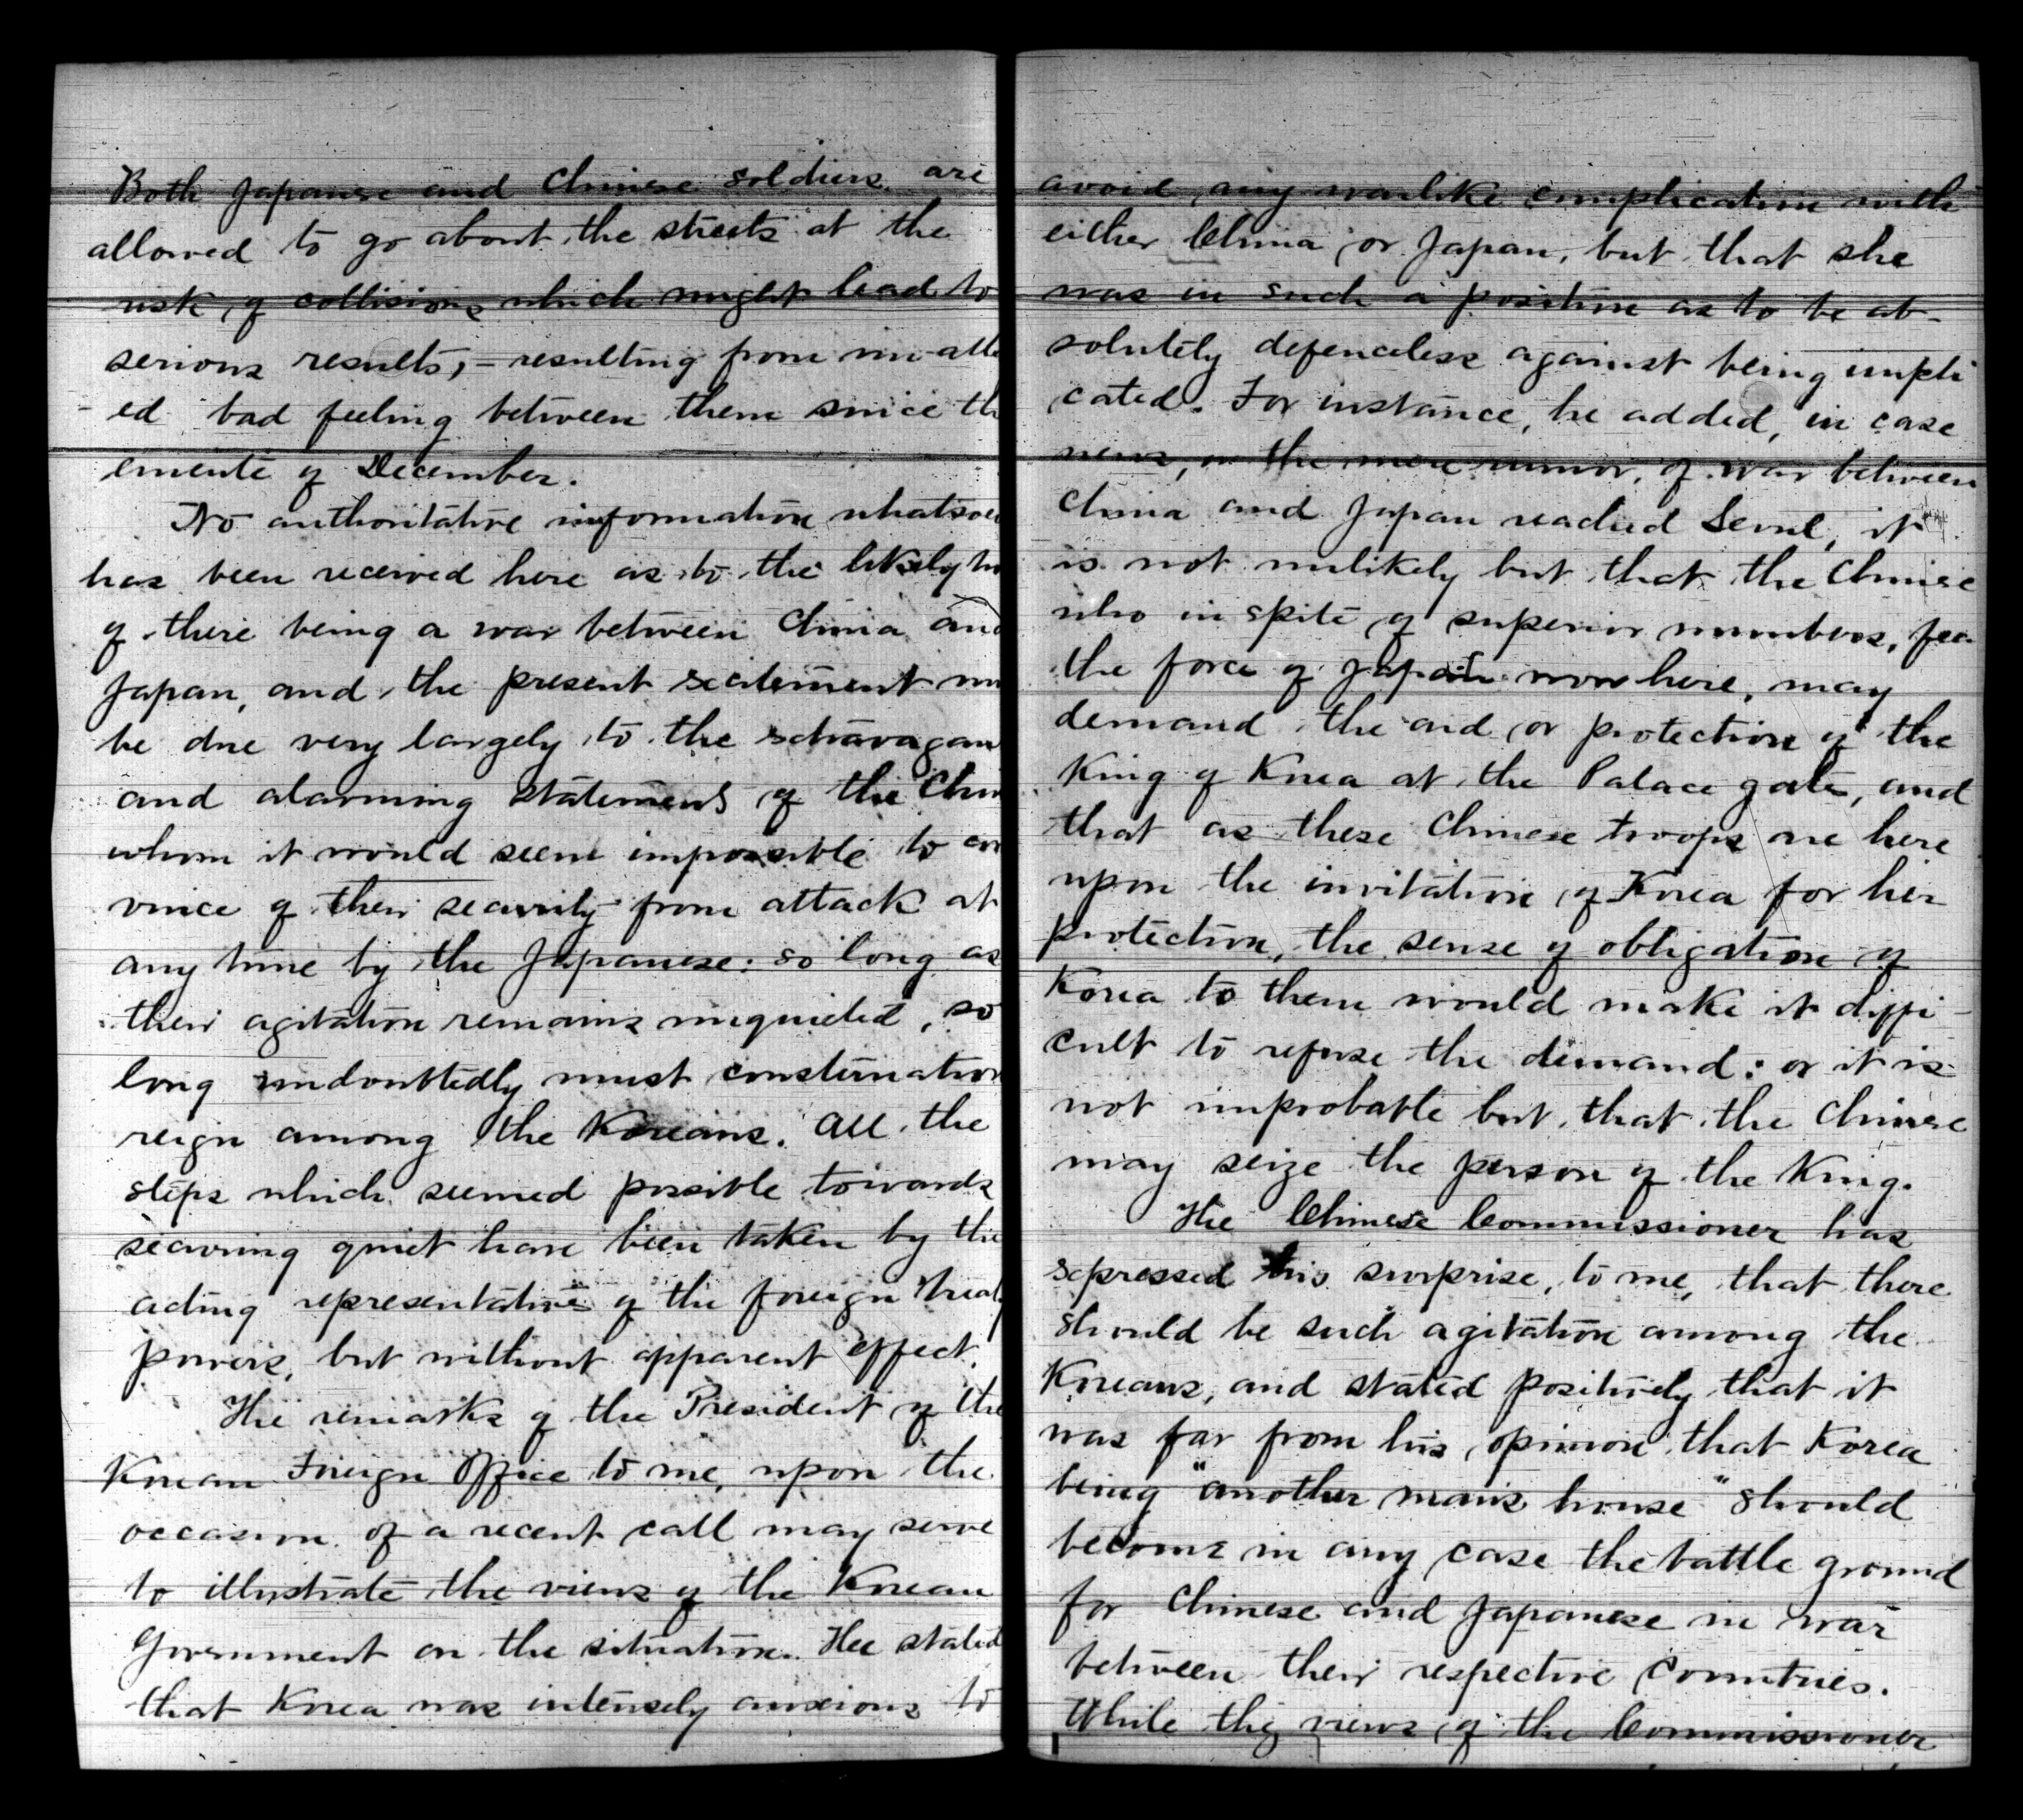 Both Japanese and Chinese soldiers are
allowed to go about the streets at the
risk of collisions which might lead to
serious results, – resulting from un-alla
ed bad feeling between them since th
emeute of December.
No authoritative information whatsoe
has been received here as to the likelyho
of there being a war between China and
Japan, and the present excitement m
be due very largely to the extravagan
and alarming statements of the Chin
whom it would seem impossible to con
vince of their security from attack at
any time by the Japanese: so long as
their agitation remains unquieted, so
long undoubtedly must consternation
reign among the Koreans. All the
steps which seemed possible towards
securing quiet have been taken by the
acting representatives of the foreign treaty
powers, but without apparent effect.
The remarks of the President of the
Korean Foreign Office to me, upon the
occasion of a recent call may serve
to illustrate the views of the Korean
Government on the situation. He stated
that Korea was intensely anxious to
avoid any warlike complication with
either China or Japan, but that she
was in such a position as to be ab-
solutely defenceless against being impli
cated. For instance, he added, in case
news, or the mere rumor, of war between
China and Japan reached Seoul, it
is not unlikely but that the Chinese
who in spite of superior numbers, fea
the force of Japan now here, may
demand the aid or protection of the
King of Korea at the Palace gate, and
that as these Chinese troops are here
upon the invitation of Korea for her
protection, the sense of obligation of
Korea to them would make it diffi-
cult to refuse the demand: or it is
not improbable but that the Chinese
may seize the person of the King.
The Chinese Commissioner has
expressed his surprise, to me, that there
should be such agitation among the
Koreans, and stated positively that it
was far from his opinion that Korea
being "another man's house" should
become in any case the battle ground
for Chinese and Japanese in war
between their respective Countries.
While the views of the Commissioner